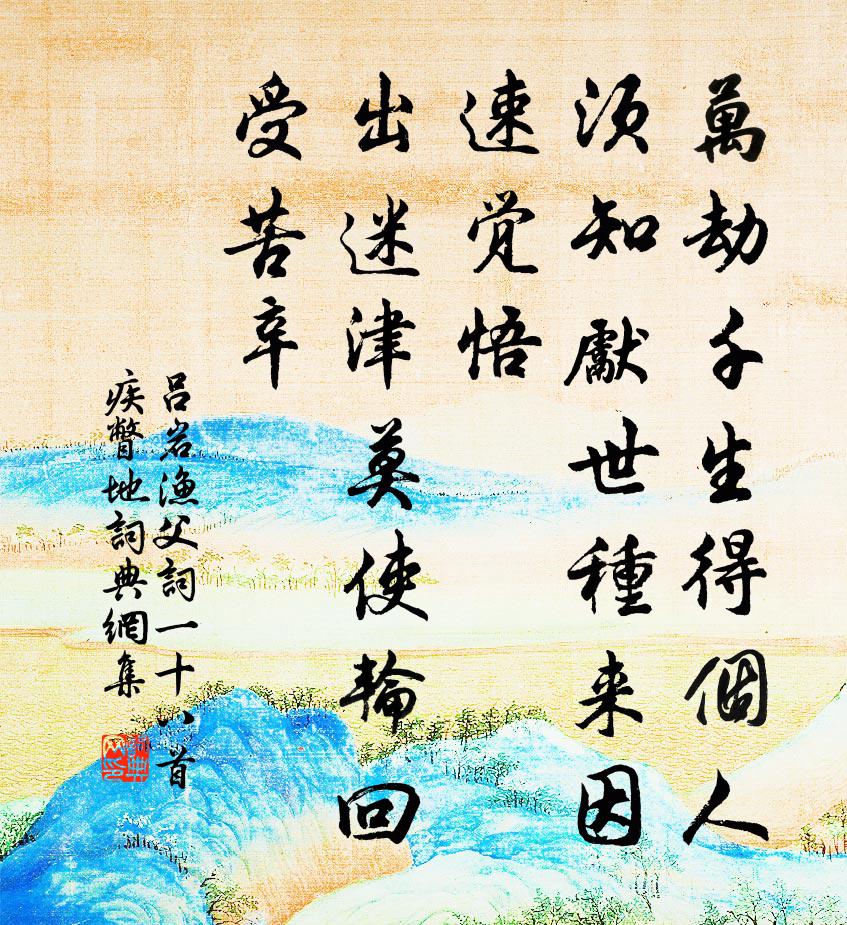 萬劫千生得個人
須知獻世種来因
速覚悟
出迷津莫使輪回
受苦辛
吕岩漁父詞一十八首
疾瞥地詞典網集